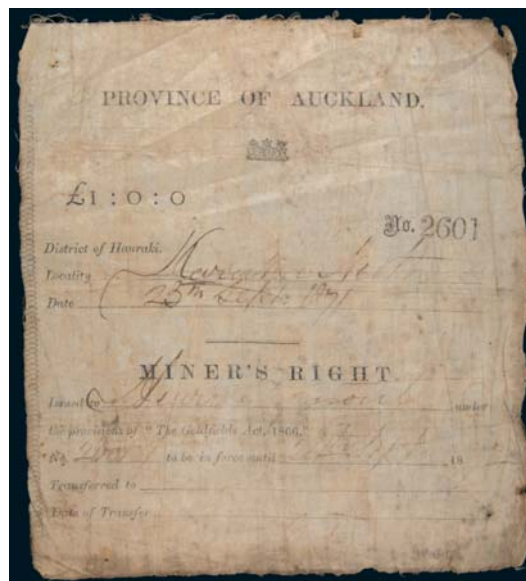 PROVINCE OF AUCKLAND.
£1 : 0 : 0
No. 2601
District of Hauraki.
Locality
Date 25th Sept 1871
MINER'S RIGHT.
Issued to under
the provisions of "The Goldfields Act, 1866,"
No. to be in force until 18
Transferred to
Date of Transfer